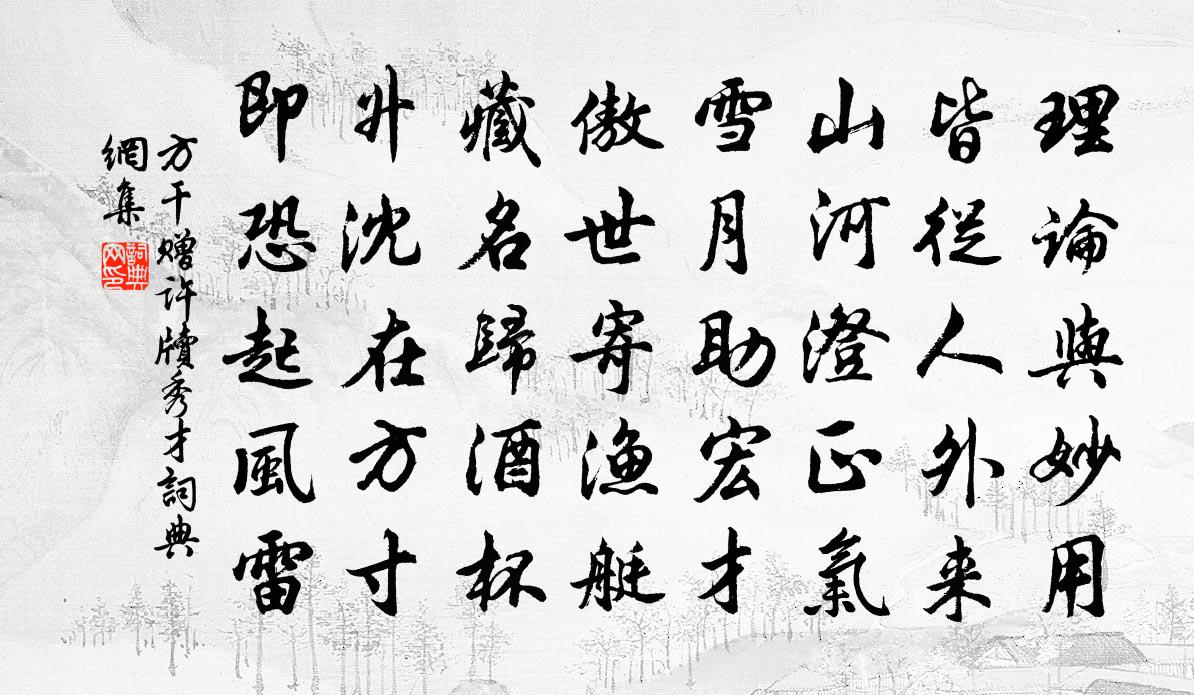 理論與妙用
皆從人外来
山河澄正氣
雪月助宏才
傲世寄漁艇
藏名歸酒杯
升沈在方寸
即恐起風雷
方干赠许牍秀才詞典
網集
詞典
网印